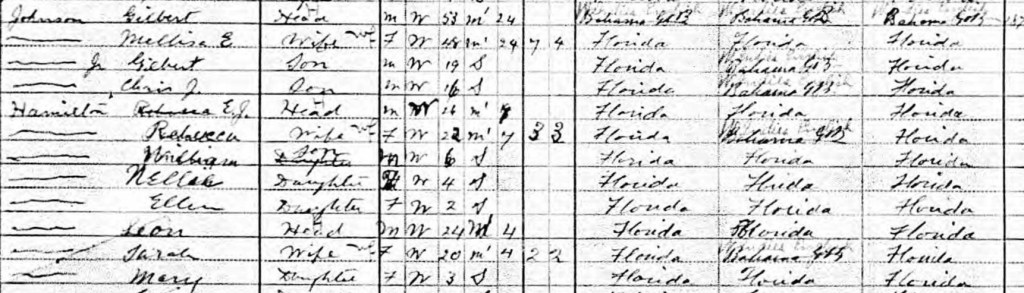 Johnson Gilbert Head m W 53 m' 24 Bahama GtB Bahama GtB Bahama GtB
—— Mellisa E Wife F W 48 m' 24 7 4 Florida Florida Florida
—— Jr Gilbert Son m W 19 S Florida Bahama GtB Florida
—— Chris J. Son m W 16 S Florida Bahama GtB Florida
Hamilton E.J. Head m W m' Florida Florida Florida
—— Rebecca Wife F W 22 m' 7 3 3 Florida Bahama GtB Florida
—— William Son m W 6 S Florida Florida Florida
—— Nellie Daughter F W 4 S Florida Florida Florida
—— Ellen Daughter F W 2 S Florida Florida Florida
—— Leon Head m W 24 M 4 Florida Florida Florida
—— Sarah Wife F W 20 m' 4 2 2 Florida Bahama GtB Florida
—— Mary Daughter F W 3 S Florida Florida Florida